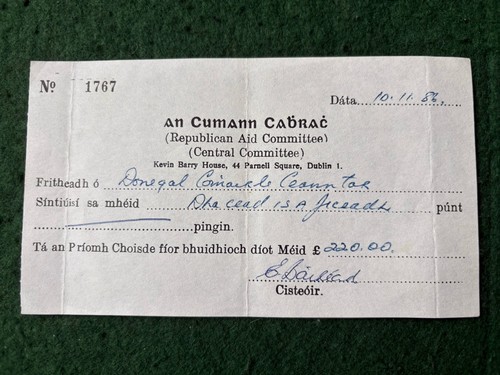 No 1767
Dáta 10.11.86.
An Cumann Caḃraċ
(Republican Aid Committee)
(Central Committee)
Kevin Barry House, 44 Parnell Square, Dublin 1.
Fritheadh ó Donegal Ceanntar
Síntiúisí sa mhéid Dha cead is a ficeadh púnt
pingin.
Tá an Príomh Choisde fíor bhuidhioch díot Méid £ 220.00.
Cisteóir.